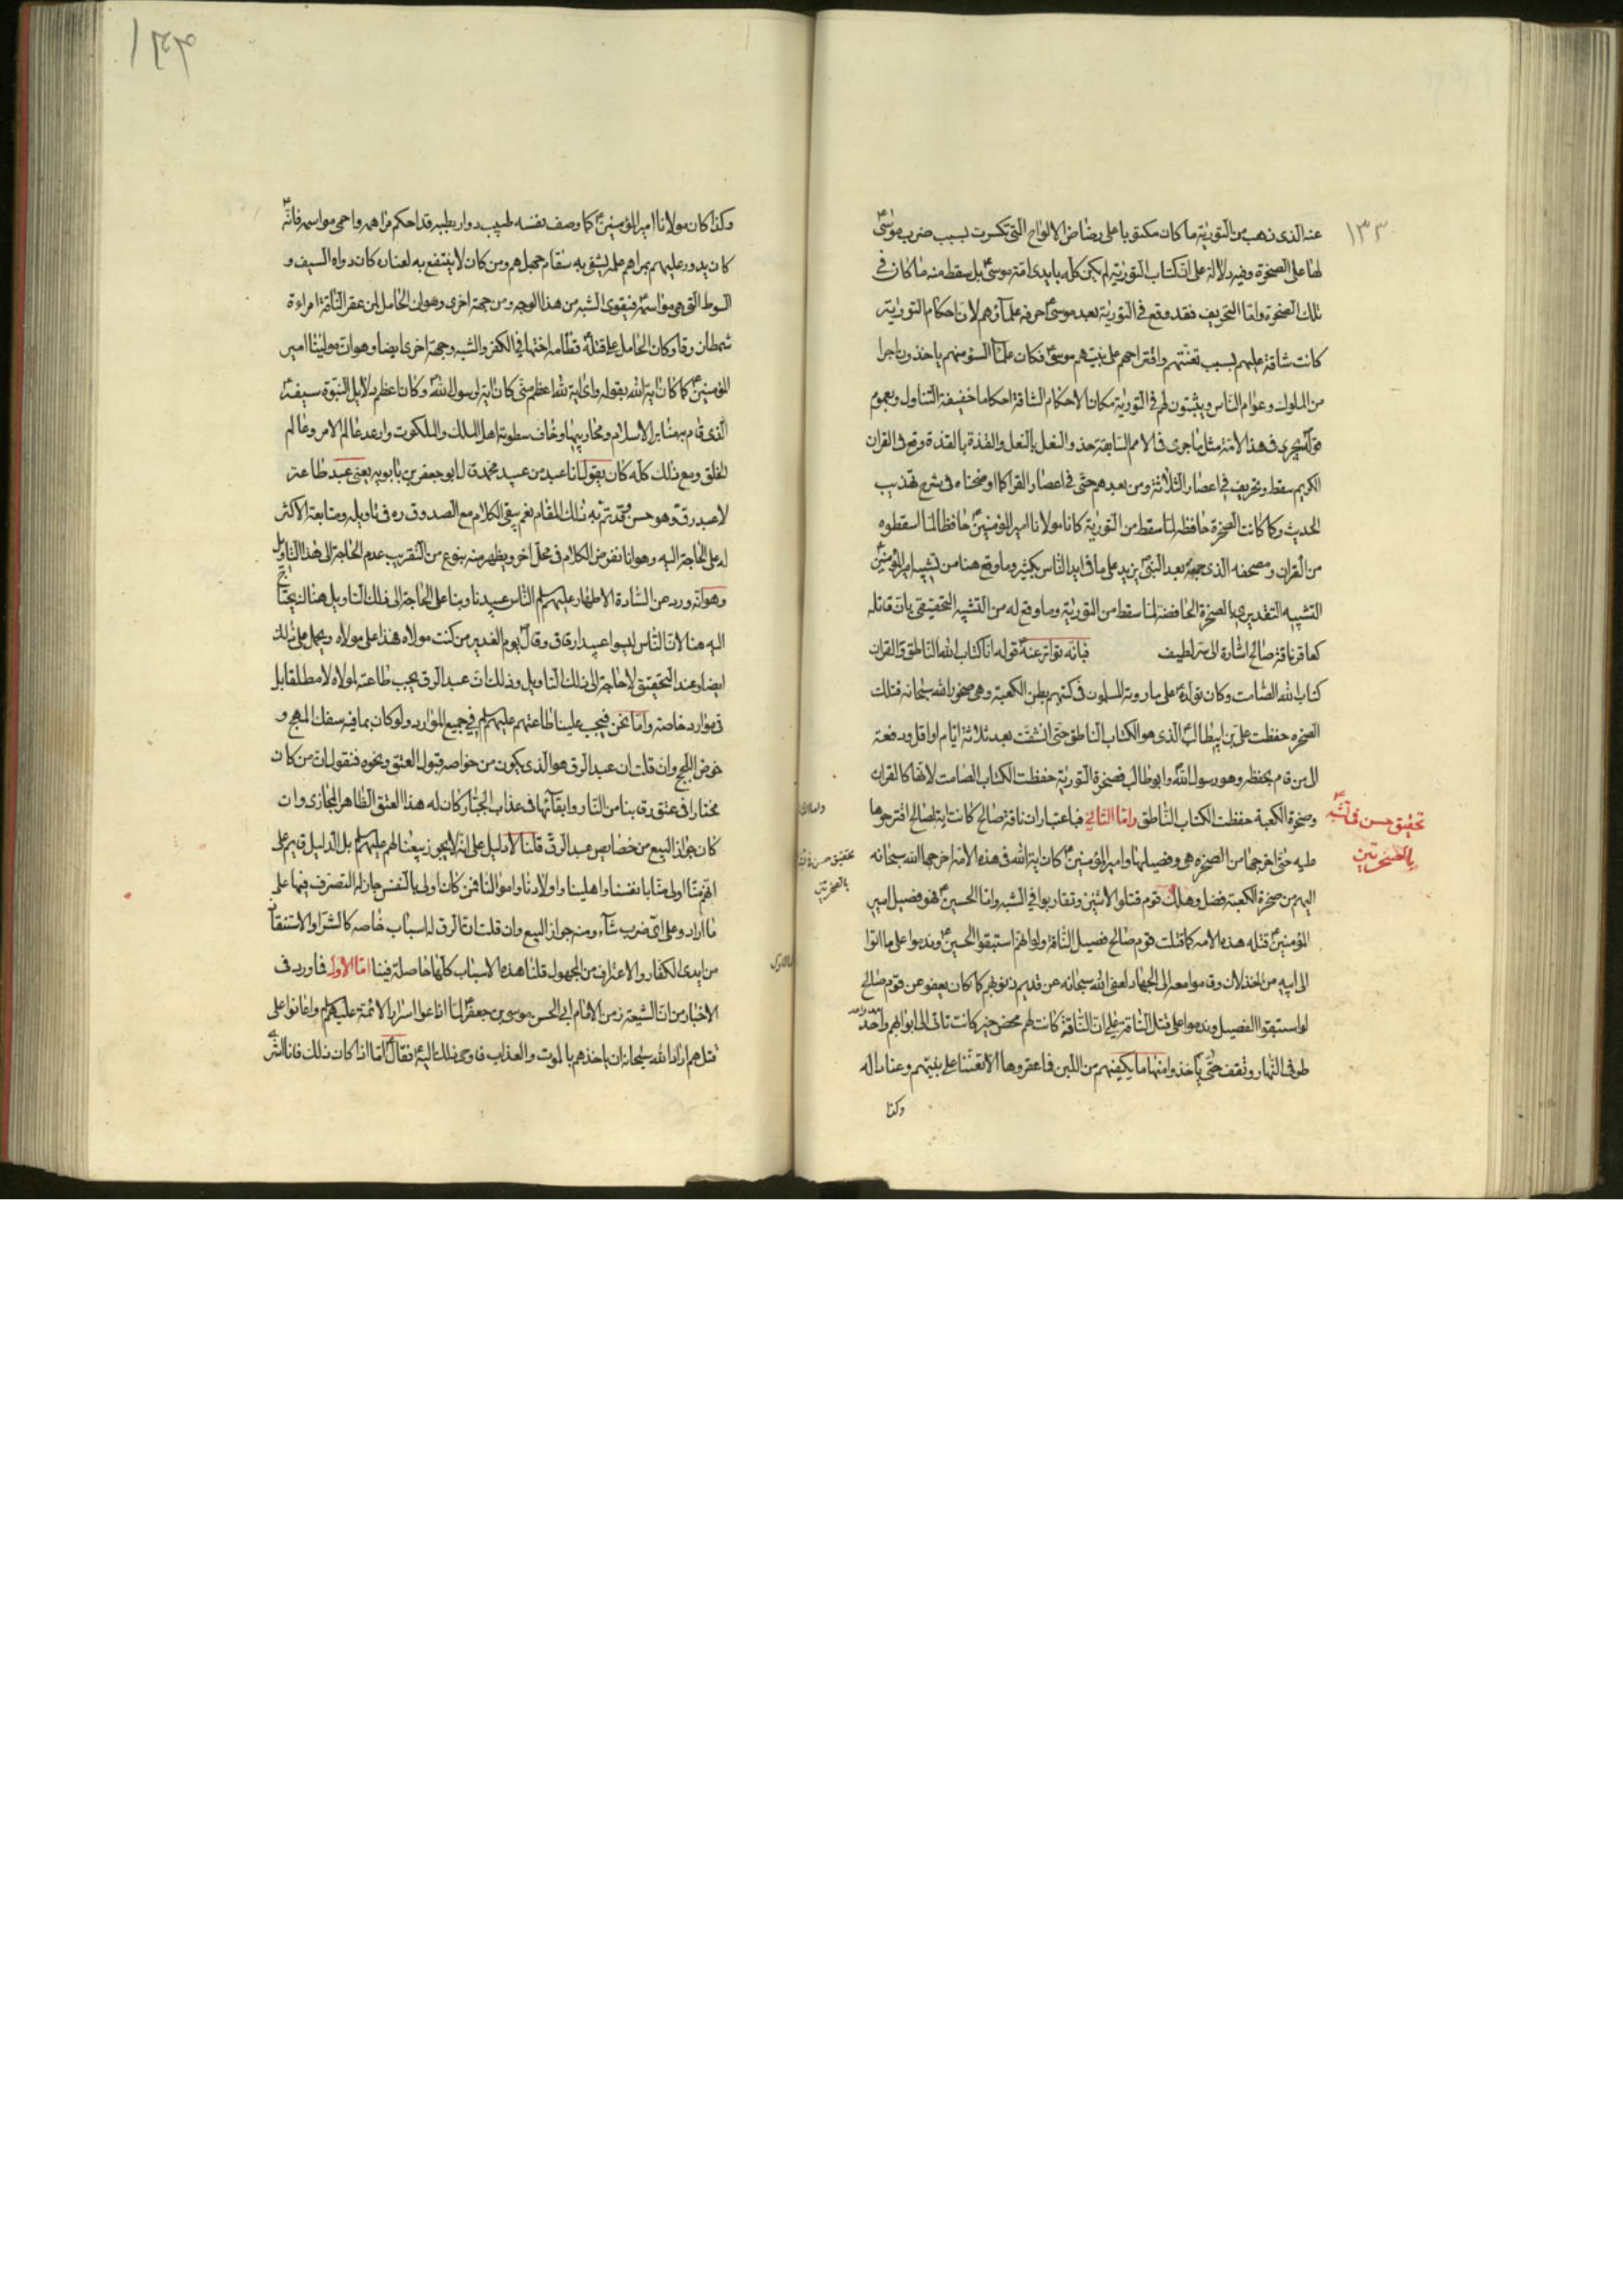 ١٣٣
عنه الذى ذهب من التورية ما كان مكتوبا على رضاض الالواح التى تكسرت بسبب ضرب موسىٰ ع
لها على الصخرة وفيه دلالة على ان كتاب التورية لم يكن كله بايدى امة موسى ع بل سقط منه ما كان فى
تلك الصخرة واما التحريف فقد وقع فى التورية بعد موسى ع حرفه علمآؤهم لان احكام التورية
كانت شاقة عليهم بسبب تعنتهم واقتراحهم على نبيهم موسى ع فكان علمآ السوٓ منهم ياخذون اجرا
من الملوك وعوام الناس ويثبتون لهم فى التورية مكان الاحكام الشاقة احكاما خفيفة التناول وبعموم
قوله سيجرى فى هذه الامة مثل ما جرى فى الامم السابقة حذو النعل بالنعل والقذة بالقذة وقع فى القران
الكريم سقط وتحريف فى اعصار الثلاثة ومن بعدهم حتى فى اعصار القرا كما اوضحناه فى شرح تهذيب
الحديث وكما كانت الصخرة حافظة لما سقط من التورية كان مولانا امير المؤمنين ع حافظا لما اسقطوه
من القران ومصحفه الذى جمعه بعد النبى ص يزيد على ما فى ايد الناس بكثير وما وقع هنا من تشبيه امير المؤمنين ع
التشبيه التقديرى بالصخرة الحافضة لما سقط من التورية وما وقع له من التشبيه التحقيقى بان قاتله
كعاقر ناقة صالح اشارة الى سر لطيف فبانه تواتر عنه ع قوله انا كتاب الله الناطق والقران
كتاب الله الصامت وكان تولده ع على ما روته المسلمون فى كتبهم بطن الكعبة وهى صخور الله سبحانه فتلك
الصخره حفظت على بن ابيطالب ع الذى هو الكتاب الناطق حتى انشقت بعد ثلاثة ايام او اقل ودفعته
الى من قام بحفظه وهو رسول الله ص وابو طالب فصخرة التورية حفظت الكتاب الصامت لانها كالقران
وصخرة الكعبة حفظت الكتاب الناطق واما الثانى فباعتبار ان ناقة صالح كانت اية لصالح اقترحوها
تحقيق حسن فى تشبيهه ع
بالصخرتين
عليه حتى اخرجها من الصخره هى وفصيلها وامير المؤمنين ع كان اية الله فى هذه الامة اخرجها الله سبحانه
اليهم من صخرة الكعبة فضل وهلك قوم قتلوا الاثنين وتقاربوا فى الشبه واما الحسين ع فهو فصيل امير
المؤمنين ع قتله هذه الامه كما قتلت قوم صالح فصيل الناقة ولو انهم استبقوا الحسين ع وندموا على ما اتوا
الى ابيه من الخذلان وقاموا معه الى الجهاد لعفى الله سبحانه عن قديم ذنوبهم كما كان يعفو عن قوم صالح
لو استبقوا الفصيل وندموا على قتل الناقة على ان الناقة كانت لهم محض خير كانت تاتى الى ابوابهم واحد
بعد واحد
طوفى النهار وتقف حتى ياخذوا منها ما يكفيهم من اللبن فاعقروها الا تعنتا على نبيهم وعنادا له
وكذا
وكذا كان مولانا امير المؤمنين ع كما وصف نفسه طبيب دوار بطبه قد احكم مراهمه واحمى مواسمه فانه ع
كان يدور عليهم بمراهم علمه يشفى به سقام جهلهم ومن كان لا ينتفع به لعناده كان دواه السيف و
السوط التى هى مواسمه فيقوى الشبه من هذا الوجه ومن جهة اخرى وهو ان الحامل لمن عقر الناقة امراءة
شمطان زرقا وكان الحامل على قتله ع قطامه اختها فى الكفر والشبه وجهة اخرى ايضا وهو ان مولينا امير
المؤمنين ع كما كان اية الله بقوله واى اية لله اعظم منى كان اية لرسول الله ص وكان اعظم دلايل النبوة سيفه ع
الذى قام بهمنابر الاسلام ومحاريبها وخاف سطوته اهل الملك والملكوت وارعد عالم الامر وعالم
الخلق ومع ذلك كله كان يقول انا عبد من عبيد محمد ص قال ابو جعفر بن بابويه يعنى عبد طاعة
لا عبد رق وهو حسن وقد تم به ذلك المقام نعم بقى الكلام مع الصدوق ره فى تاويله ومتابعة الاكثر
له على الحاجة اليه وهو انا نفرض الكلام فى محل اخر ويظهر منه بنوع من التقريب عدم الحاجة الى هذا التاويل
وهو انه ورد عن السادة الاطهار عليهم السلم الناس عبيدنا وبنا على الحاجة الى ذلك التاويل هناك يحتاج
اليه هنا لان الناس ليسوا عبيد ارقاق وقال ص يوم الغدير من كنت مولاه فهذا على مولاه ويحمل على ذلك
ايضا وعند التحقيق لا حاجة الى ذلك التاويل وذلك ان عبد الرق يجب طاعته لمولاه لا مطلقا بل
فى موارد خاصة واما نحن فيجب علينا طاعتهم عليهم السلم فى جميع الموارد ولو كان بما فيه سفك المهج و
خوض اللجج وان قلت ان عبد الرق هو الذى يكون من خواصه قبول العتق ونحوه فنقول ان من كان
مختارا فى عتق رقابنا من النار وابقآئها فى عذاب الجبار كان له هذا العتق الظاهر المجازى وان
كان جواز البيع من خصايص عبد الرق قلنا لا دليل على انه لا يجوز بيعنا لهم عليهم السلم بل الدليل قايم على
انهم منا اولى منا بانفسنا واهلينا واولادنا واموالنا فمن كان اولى بالنفس جاز له التصرف فيها على
ما اراد وعلى اى ضرب شآء ومنه جواز البيع وان قلت ان الرق له اسباب خاصه كالشرا والاستنقاذ
من ايدى الكفار والاعتراف من المجهول قلنا هذه الاسباب كلها حاصلة فينا اما الاول فما ورد فى
الاخبار من ان الشيعة زمن الامام ابى الحسن موسى بن جعفر ع لما اذاعوا اسرار الائمة عليهم السلم واعانوا على
قتلهم اراد الله سبحانه ان ياخذهم بالموت والعذاب فاوحى ذلك اليه ع فقال ع اما اذا كان ذلك فانا اشتريهم